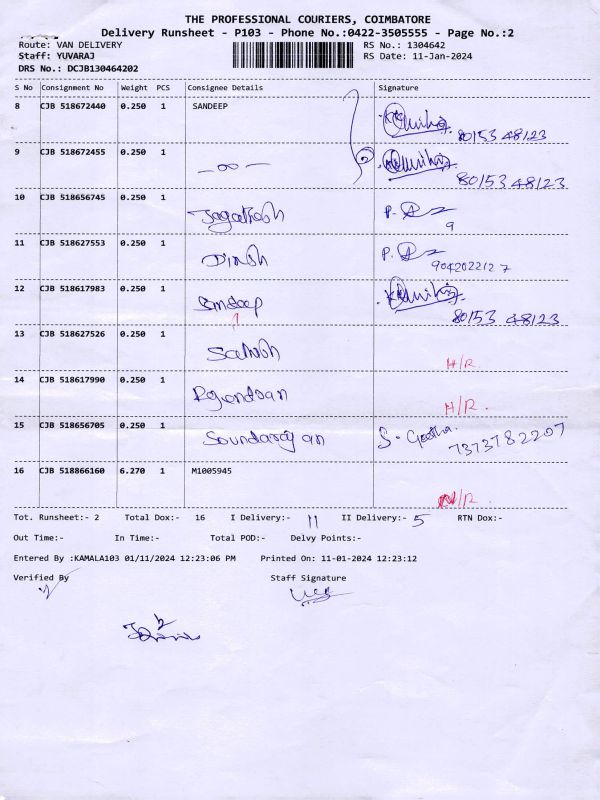 THE PROFESSIONAL COURIERS, COIMBATORE
Delivery Runsheet - P103 - Phone No.:0422-3505555 - Page No.:2
Route: VAN DELIVERY RS No.: 1304642
Staff: YUVARAJ RS Date: 11-Jan-2024
DRS No.: DCJB130464202
S No Consignment No Weight PCS Consignee Details Signature
8 CJB 518672440 0.250 1 SANDEEP
80153 48123
9 CJB 518672455 0.250 1 -oo-
80153 48123
10 CJB 518656745 0.250 1 P.
9
11 CJB 518627553 0.250 1 Dinsh P.
9042022127
12 CJB 518617983 0.250 1 Smdeep
80153 48123
13 CJB 518627526 0.250 1 Sathish
H/R.
14 CJB 518617990 0.250 1
H/R.
15 CJB 518656705 0.250 1 Soundarajan S. Geetha
7373782207
16 CJB 518866160 6.270 1 M1005945
H/R.
Tot. Runsheet:- 2 Total Dox:- 16 I Delivery:- 11 II Delivery:- 5 RTN Dox:-
Out Time:- In Time:- Total POD:- Delvy Points:-
Entered By :KAMALA103 01/11/2024 12:23:06 PM Printed On: 11-01-2024 12:23:12
Verified By Staff Signature